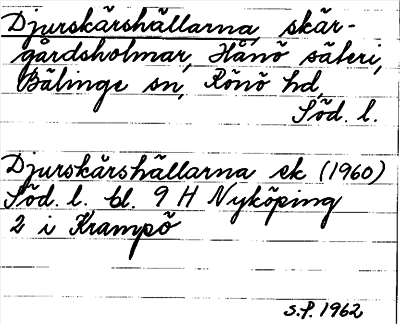 Djurskärshällarna, skär-
gårdsholmar, Hånö säteri,
Bälinge sn, Rönö hd,
Söd. l.
Djurskärshällarna ek (1960)
Söd. l. bl. 9 H Nyköping
2 i Krampö
S.F. 1962